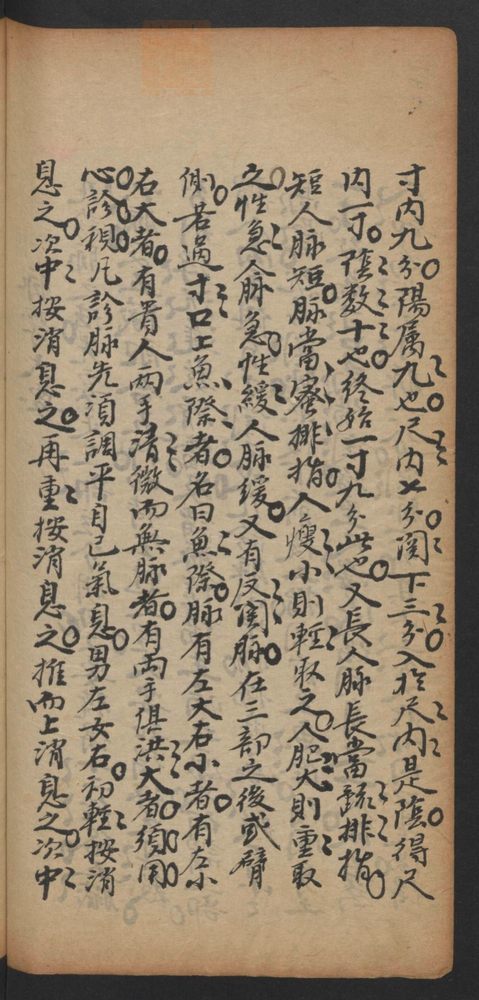 寸内九分陽属九也尺内七分関下三分入於尺内是陰得尺
内一寸陰数十也終始一寸九分此也又長人脉長當踈排指
短人脉短脉當蜜排指人瘦小則輕取之人肥大則重取
之性急人脉急性緩人脉緩又有反関脉在三部之後或臂
側若過寸口上魚際者名曰魚際脉有左大右小者有左小
右大者有貴人兩手清微而無脉者有両手俱洪大者須用
心診視凡診脉先須調平自己氣息男左女右初輕按消
息之次中按消息之再重按消息之推而上消息之次中